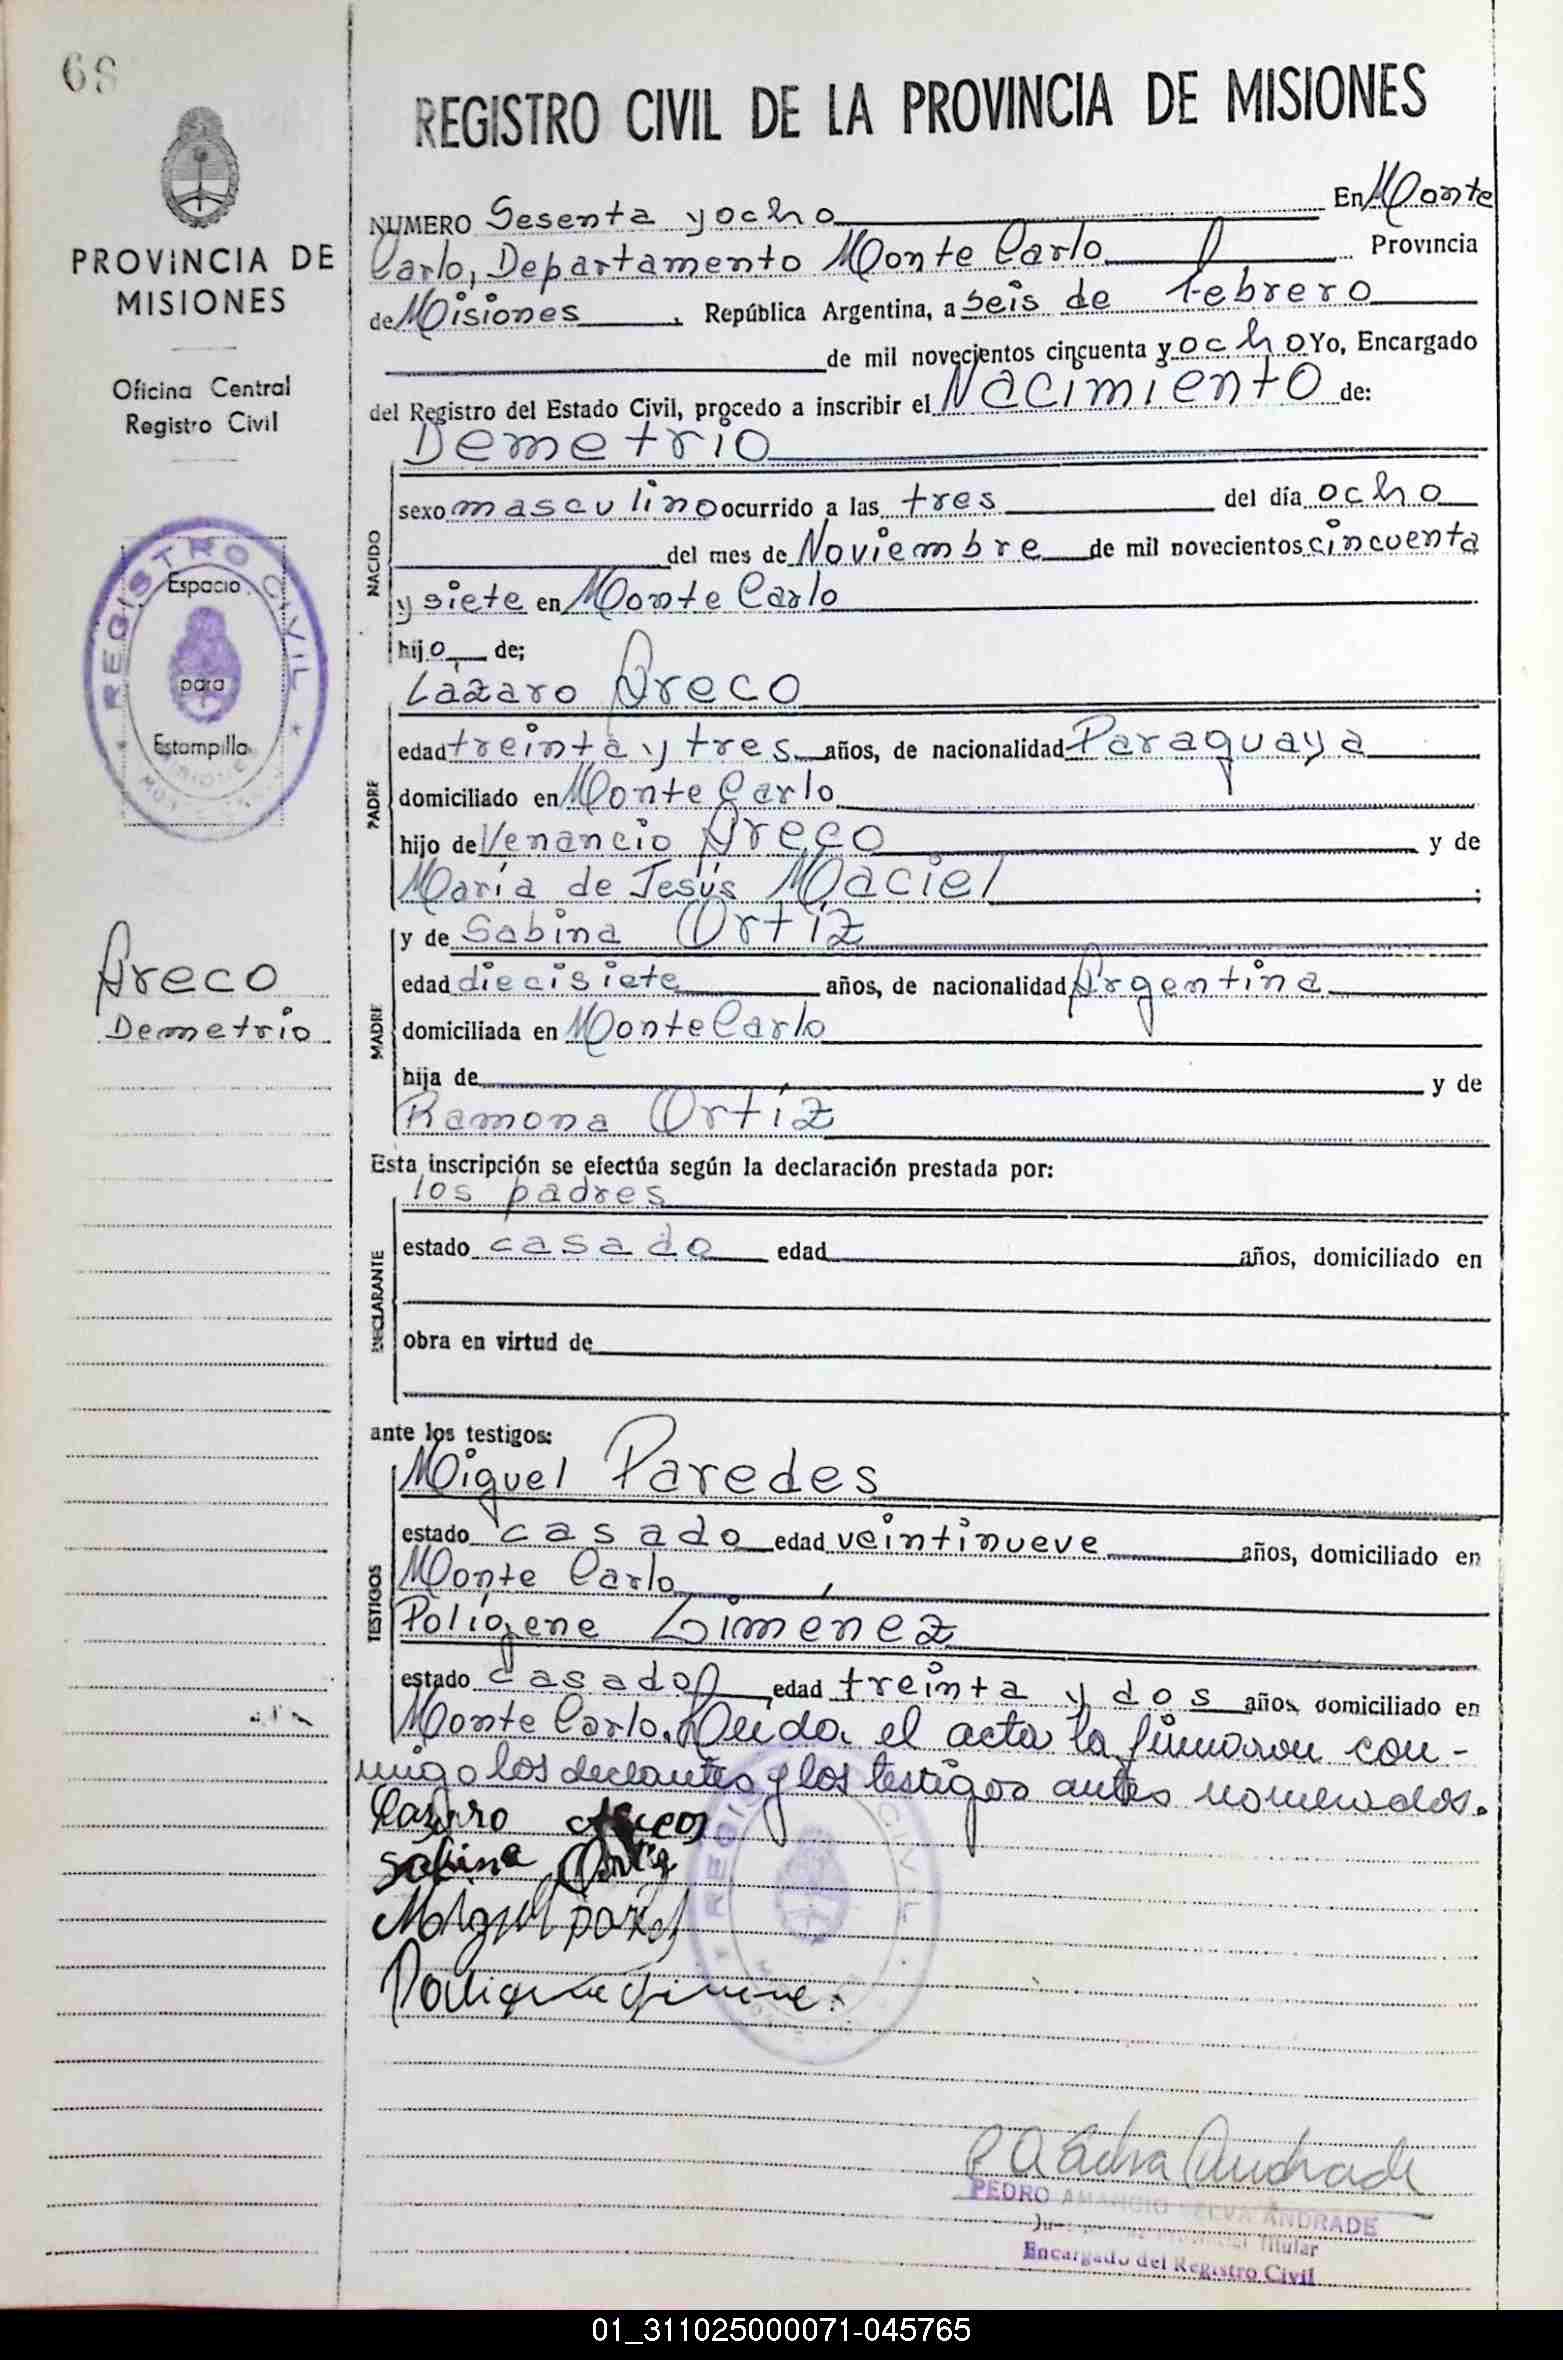 68
REGISTRO CIVIL DE LA PROVINCIA DE MISIONES
PROVINCIA DE
MISIONES
Oficina Central
Registro Civil
REGISTRO CIVIL
Espacio
para
Estampilla
Areco
Demetrio
NUMERO Sesenta y ocho En Monte
Carlo, Departamento Monte Carlo Provincia
de Misiones, República Argentina, a seis de febrero
de mil novecientos cincuenta y ocho Yo, Encargado
del Registro del Estado Civil, procedo a inscribir el Nacimiento de:
Demetrio
NACIDO
sexo masculino ocurrido a las tres del día ocho
del mes de Noviembre de mil novecientos cincuenta
y siete en Monte Carlo
hijo de;
Lázaro Areco
PADRE
edad treinta y tres años, de nacionalidad Paraguaya
domiciliado en Monte Carlo
hijo de Venancio Areco y de
María de Jesús Maciel;
y de Sabina Ortíz
MADRE
edad diecisiete años, de nacionalidad Argentina
domiciliada en Monte Carlo
hija de y de
Ramona Ortíz
Esta inscripción se efectúa según la declaración prestada por:
los padres
DECLARANTE
estado casado edad años, domiciliado en
obra en virtud de
ante los testigos:
Miguel Paredes
TESTIGOS
estado casado edad veintinueve años, domiciliado en
Monte Carlo
Polígene Giménez
estado casado edad treinta y dos años, domiciliado en
Monte Carlo. Leida el acta la firmaron con-
migo los declantes y los testigos antes nomerados.
Lazaro Areco
Sabina Ortiz
REGISTRO CIVIL
P A Selva Andrade
PEDRO AMANCIO SELVA ANDRADE
Titular
Encargado del Registro Civil
01_311025000071-045765